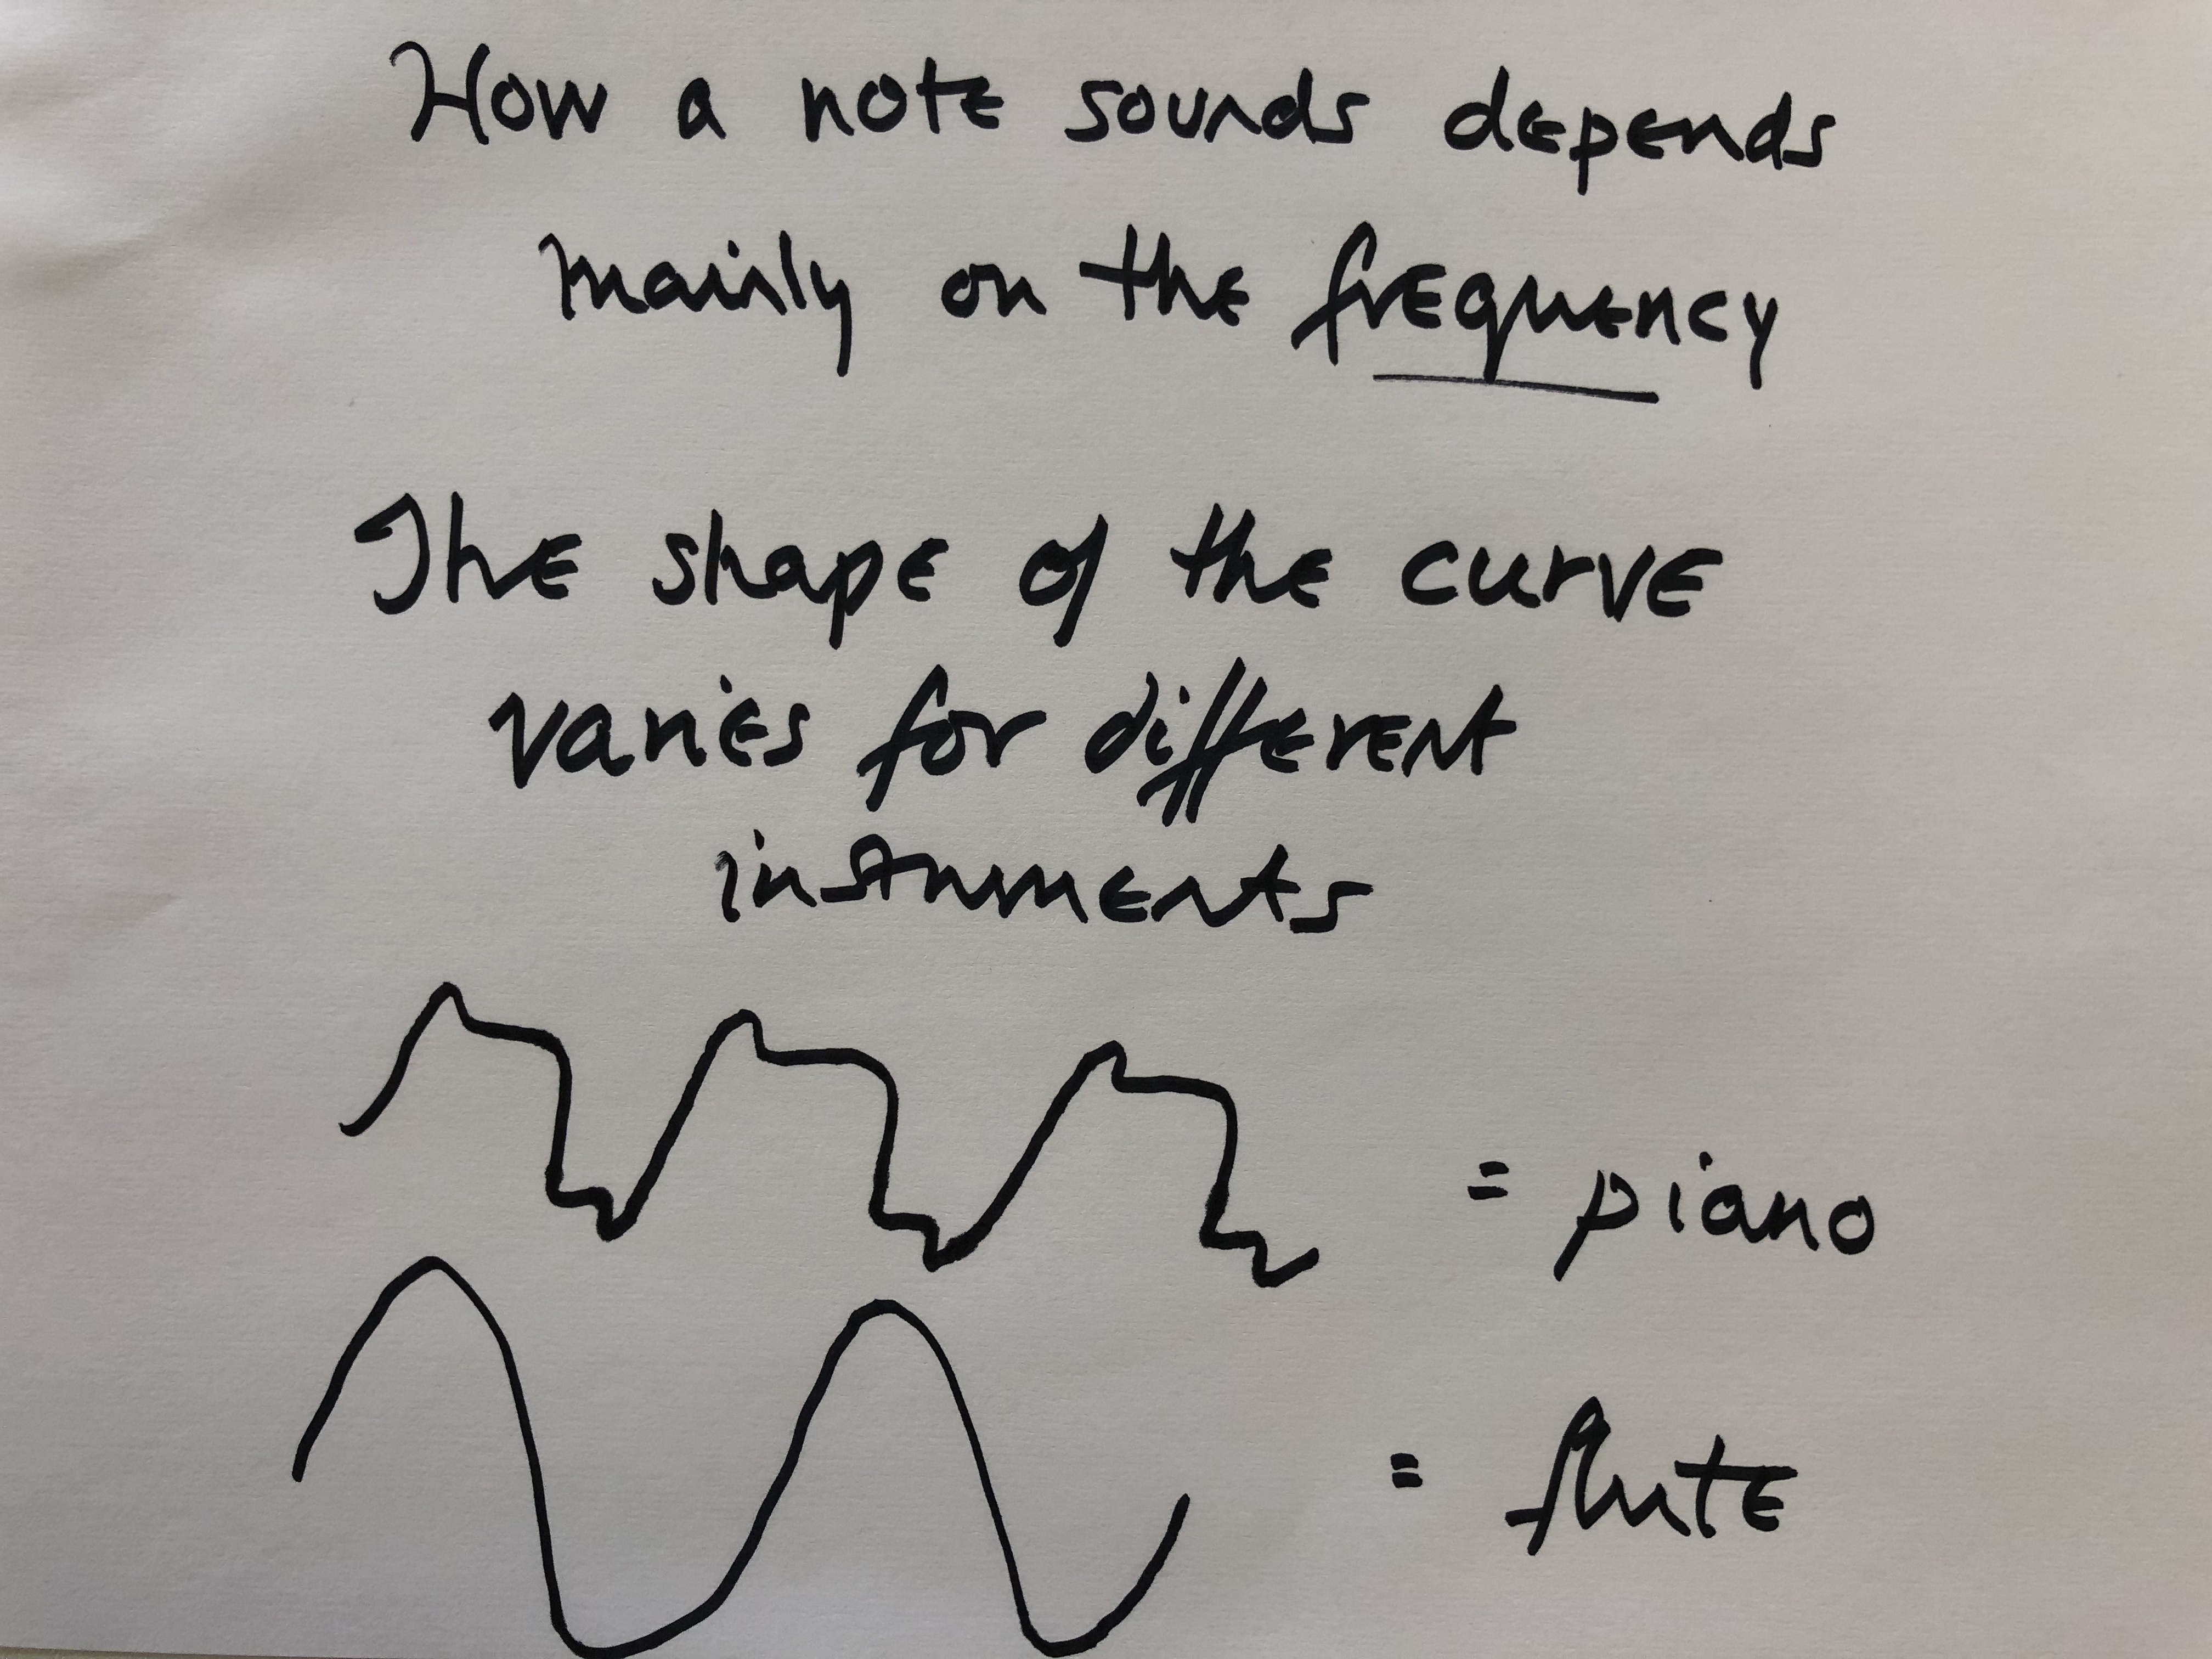 How a note sounds depends
mainly on the frequency
The shape of the curve
varies for different
instruments
= piano
= flute